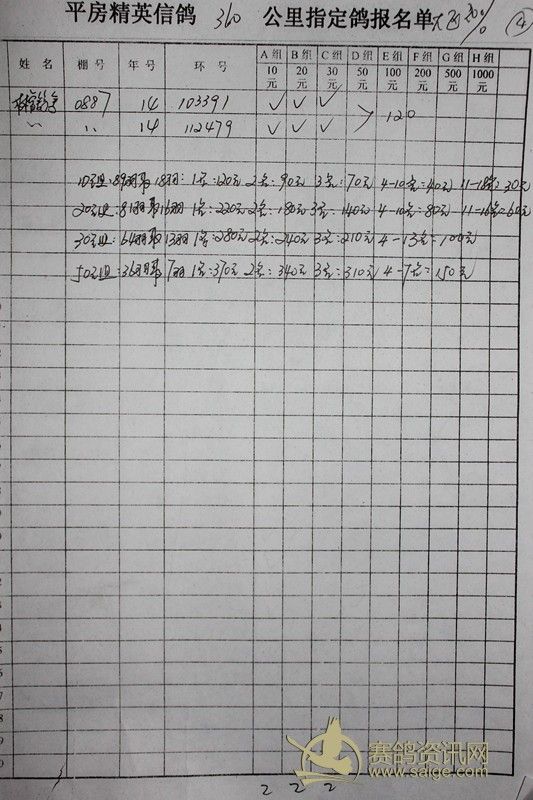 平房精英信鸽 360 公里指定鸽报名单 20% ④
姓 名 棚 号 年 号 环 号 A 组 10 元 B 组 20 元 C 组 30 元 D 组 50 元 E 组 100 元 F 组 200 元 G 组 500 元 H 组 1000 元
0887 14 103391 ✓ ✓ ✓
〃 〃 14 112479 ✓ ✓ ✓ > 120
10元组:89羽取18羽:1名:120元 2名:90元 3名:70元 4-10名:40元 11-18名:30元
20元组:81羽取16羽 1名:220元 2名:180元 3名:140元 4-10名:80元 11-16名:60元
30元组:64羽取13羽 1名:280元 2名:240元 3名:210元 4-13名:100元
50元组:36羽取7羽 1名:370元 2名:340元 3名:310元 4-7名:150元
2 2 2
赛鸽资讯网
www.saige.com